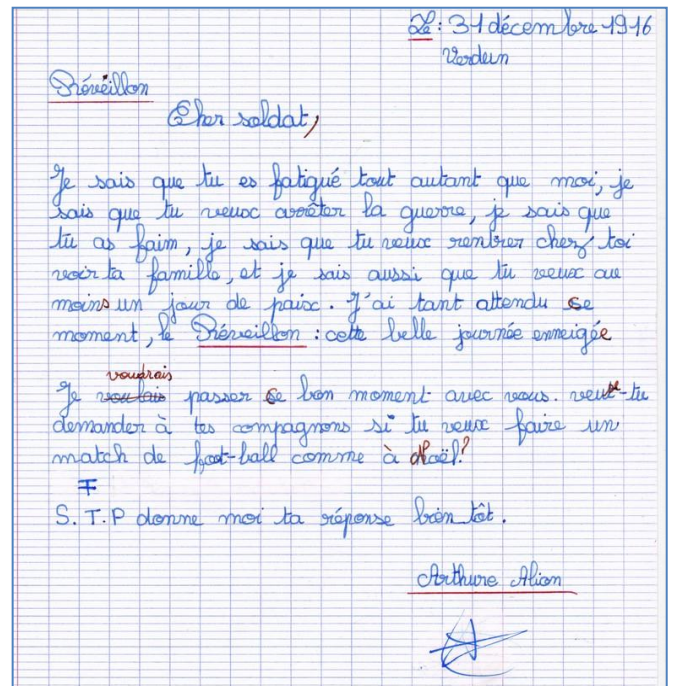 Le : 31 décembre 1916
Verdun
Réveillon
Cher soldat,
Je sais que tu es fatigué tout autant que moi, je
sais que tu veux arrêter la guerre, je sais que
tu as faim, je sais que tu veux rentrer chez toi
voir ta famille, et je sais aussi que tu veux au
moins un jour de paix. J'ai tant attendu ce
moment, le Réveillon : cette belle journée enneigée
voudrais
Je voulais passer ce bon moment avec vous. veux-tu
demander à tes compagnons si tu veux faire un
match de foot-ball comme à Noël?
S.T.P donne moi ta réponse bien tôt.
Arthure Alion